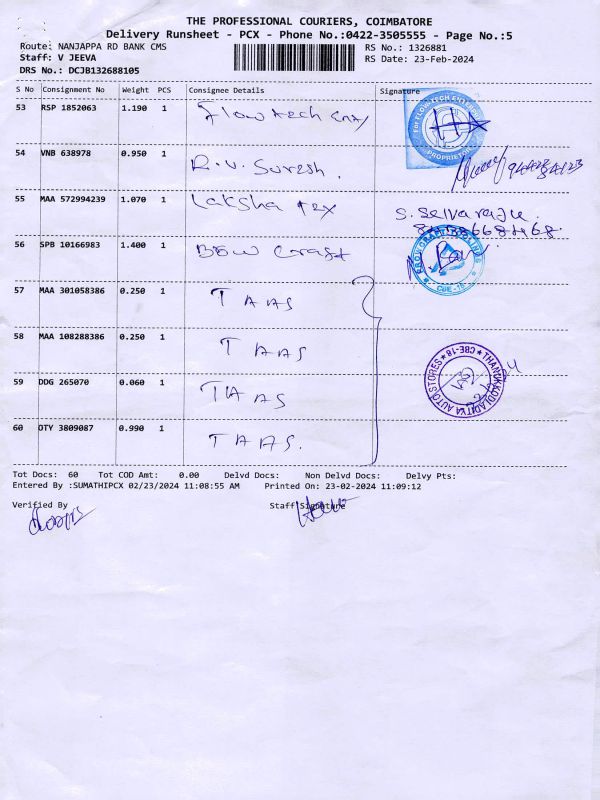 THE PROFESSIONAL COURIERS, COIMBATORE
Delivery Runsheet - PCX - Phone No.:0422-3505555 - Page No.:5
Route: NANJAPPA RD BANK CMS RS No.: 1326881
Staff: V JEEVA RS Date: 23-Feb-2024
DRS No.: DCJB132688105
S No Consignment No Weight PCS Consignee Details Signature
53 RSP 1852063 1.190 1 Flowtech
PROPRIETOR
54 VNB 638978 0.950 1 R.V. Suresh.
55 MAA 572994239 1.070 1 Laksha Tex S. Selvaraju.
56 SPB 10166983 1.400 1
CBE-18
57 MAA 301058386 0.250 1 TAAS
58 MAA 108288386 0.250 1 TAAS
THANUKKODI ADITYA AUTO STORES ★ CBE-18 ★
59 DDG 265070 0.060 1 TAAS
60 OTY 3809087 0.990 1 TAAS.
Tot Docs: 60 Tot COD Amt: 0.00 Delvd Docs: Non Delvd Docs: Delvy Pts:
Entered By :SUMATHIPCX 02/23/2024 11:08:55 AM Printed On: 23-02-2024 11:09:12
Verified By Staff Signature